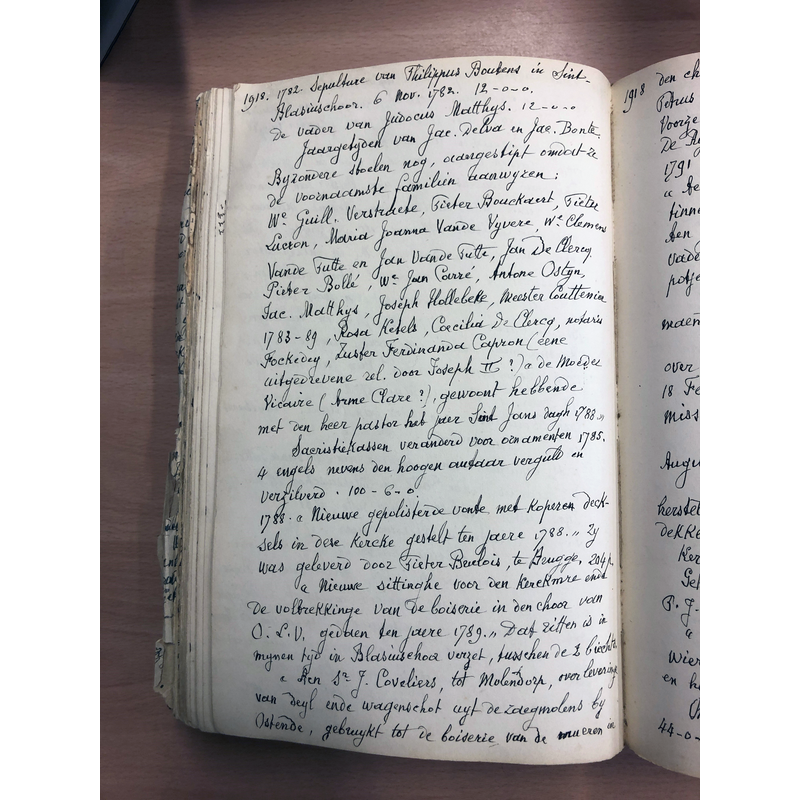 1918. 1782. Sepulture van Philippus Boutens in Sint-
Blasiuschoor. 6 Nov. 1782. 12-0-0.
de vader van Judocus Matthys. 12-0-0
Jaargetyden van Jac. Delva en Jac. Bonte.
Byzondere stoelen nog, aangestipt omdat ze
de voornaamste familien aanwyzen:
We Guill. Verstraete, Pieter Bouckaert, Pieter
Lucron, Maria Joanna Vande Vyvere, We Clemens
Vande Putte en Jan Vande Putte, Jan De Clercq
Pieter Bollé, We Jan Carré, Antone Ostyn,
Jac. Matthys, Joseph Hollebeke, Meester Couttenier
1783-89, Rosa Ketels, Cæcilia De Clercq, notaris
Fockedey, Zuster Ferdinanda Capron (eene
uitgedrevene rel. door Joseph II ?) « de Moeder
Vicaire (Arme Clare ?), gewoont hebbende
met den heer pastor het jaer Sint Jans dagh 1788.»
Sacristiekassen veranderd voor ornamenten 1785.
4 engels nevens den hoogen autaar verguld en
verzilverd. 100-6-0.
1788. « Nieuwe gepolisterde vonte met koperen deck-
sels in dese kercke gestelt ten jaere 1788.» Zy
was geleverd door Pieter Budois, te Brugge, 204 p.
« Nieuwe sittinghe voor den kerckmre ende
De voltrekkinge van de boiserie in den choor van
O. L. V. gedaen ten jaere 1789.» Dat zitten is in
mynen tyd in Blasiuschoor verzet, tusschen de 2 biechts
« Aen Sr J. Coveliers, tot Molendorp, over levering
van deyl ende wagenschot uyt de zaegmolens by
Ostende, gebruykt tot de boiserie van de mueren in
1918 den
Petrus
Voorze
De
1791
«
tinne
den
vade
potje
maen
over
18 Fe
miss
Augu
herstel
dekke
Ker
Gel
P. J.
«
Wier
en h
44-0-